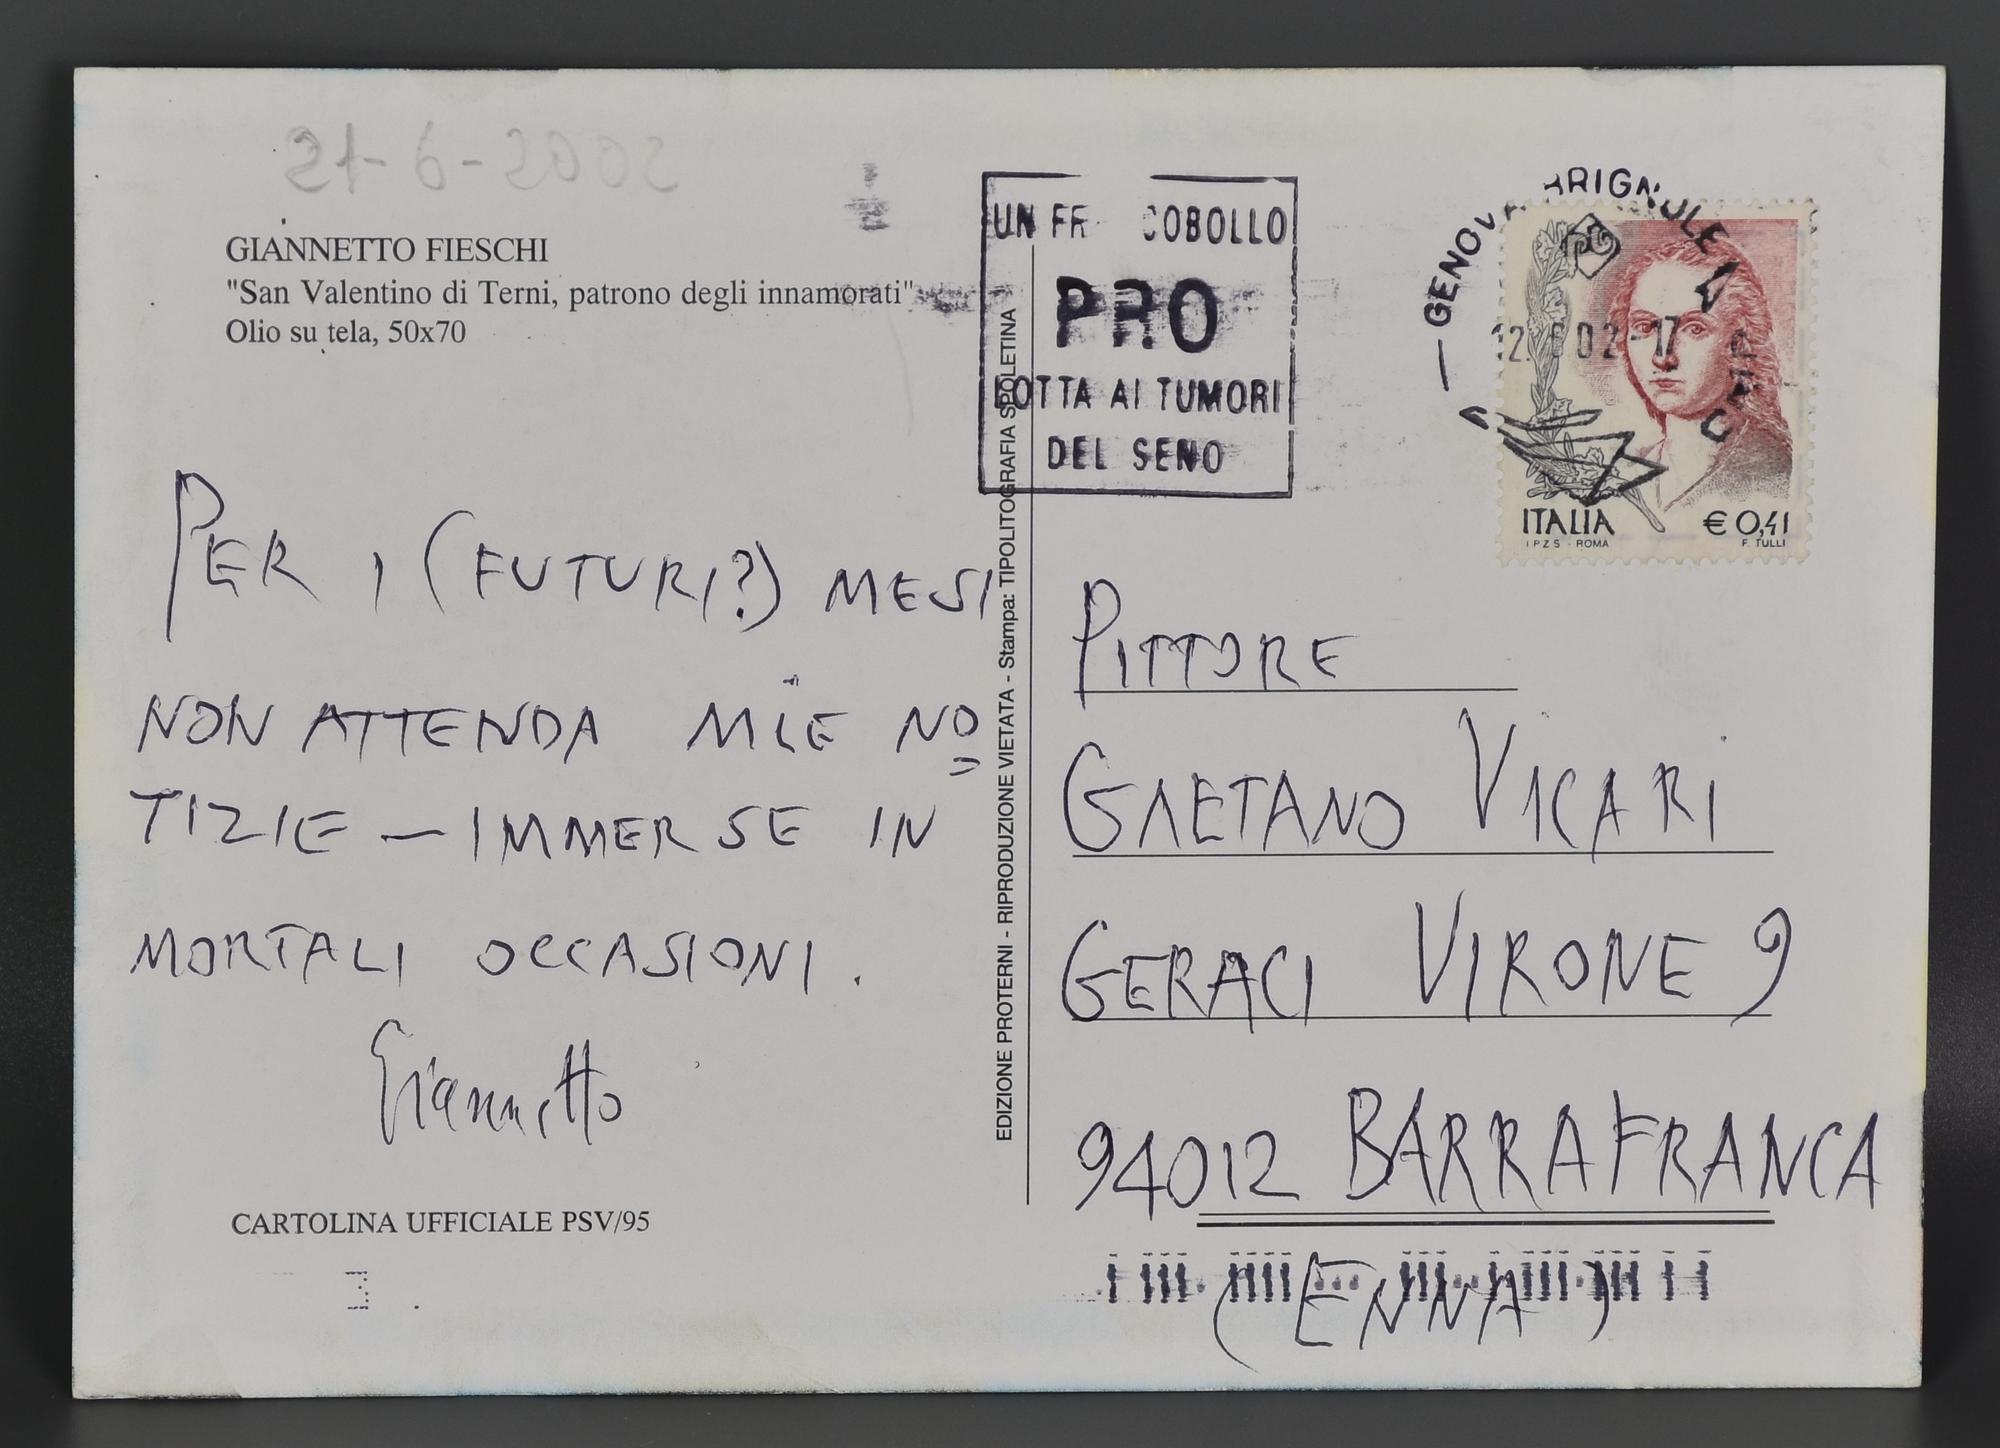 21-6-2002
GIANNETTO FIESCHI
"San Valentino di Terni, patrono degli innamorati"
Olio su tela, 50x70
PER I (FUTURI?) MESI
NON ATTENDA MIE NO=
TIZIE — IMMERSE IN
MORTALI OCCASIONI.
Giannetto
CARTOLINA UFFICIALE PSV/95
EDIZIONE PROTERNI - RIPRODUZIONE VIETATA - Stampa: TIPOLITOGRAFIA SPOLETINA
UN FR COBOLLO
PRO
LOTTA AI TUMORI
DEL SENO
GENOVA BRIGNOLE
02-17
ITALIA
€ 0,41
I P Z S - ROMA
F. TULLI
PITTORE
GAETANO VICARI
GERACI VIRONE 9
94012 BARRAFRANCA
(ENNA)